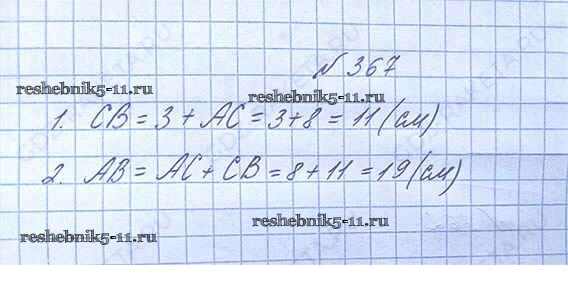 № 367
reshebnik5-11.ru
reshebnik5-11.ru
1. CB = 3 + AC = 3+8 = 11 (см)
2. AB = AC + CB = 8 + 11 = 19 (см)
reshebnik5-11.ru
reshebnik5-11.ru